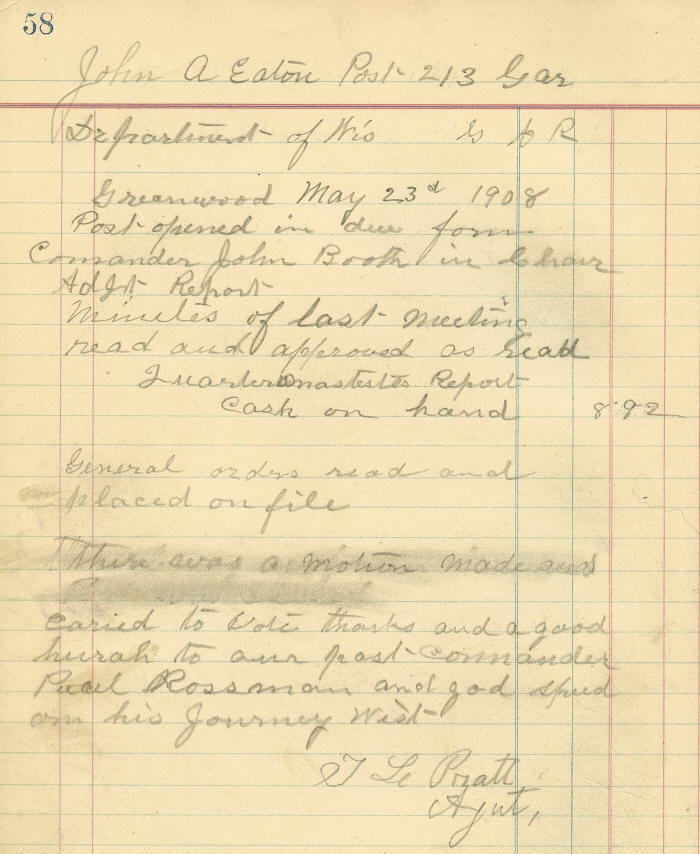 58
John A Eaton Post 213 Gar
Department of Wis G A R
Greenwood May 23d 1908
Post opened in due form
Comander John Booth in Chair
AdJt Report
Minutes of last Meeting
read and approved as read
Quartermastetes Report
Cash on hand 8 92
General orders read and
placed on file
There was a motion made and
caried to vote thanks and a good
hurah to our past Commander
Paul Rossman and god speed
on his Journey West
Le Pratt
Ajut,